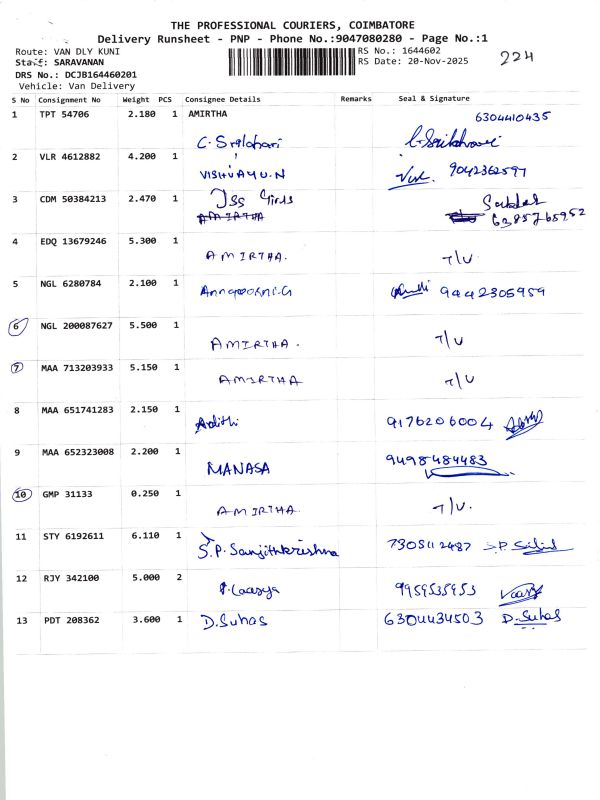 THE PROFESSIONAL COURIERS, COIMBATORE
Delivery Runsheet - PNP - Phone No.:9047080280 - Page No.:1
Route: VAN DLY KUNI RS No.: 1644602 224
Staff: SARAVANAN RS Date: 20-Nov-2025
DRS No.: DCJB164460201
Vehicle: Van Delivery
S No Consignment No Weight PCS Consignee Details Remarks Seal & Signature
1 TPT 54706 2.180 1 AMIRTHA 6304410435
C. Srilahari
2 VLR 4612882 4.200 1 VISHVAYU.N 9042362597
3 CDM 50384213 2.470 1 JSS Girls
AMIRTHA 6385765952
4 EDQ 13679246 5.300 1
AMIRTHA. T/U.
5 NGL 6280784 2.100 1 Annapoorni.G 9442305959
6 NGL 200087627 5.500 1
AMIRTHA. T/U
7 MAA 713203933 5.150 1
AMIRTHA T/U
8 MAA 651741283 2.150 1
Adithi 9176206004
9 MAA 652323008 2.200 1
MANASA 9498484483
10 GMP 31133 0.250 1
AMIRTHA. T/U.
11 STY 6192611 6.110 1
S.P. Sanjithkrishna 7305112487
12 RJY 342100 5.000 2
P. Laasya 9959535953
13 PDT 208362 3.600 1 D.Suhas 6304434503 D.Suhas